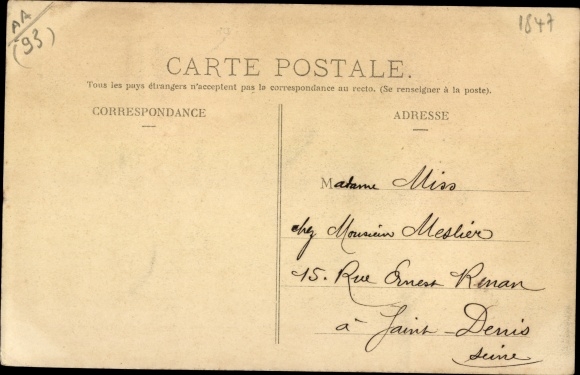 AA
(93)
1847
CARTE POSTALE.
Tous les pays étrangers n'acceptent pas la correspondance au recto. (Se renseigner à la poste).
CORRESPONDANCE
ADRESSE
Madame Miss
chez Monsieur Meslier
15. Rue Ernest Renan
à Saint-Denis
Seine